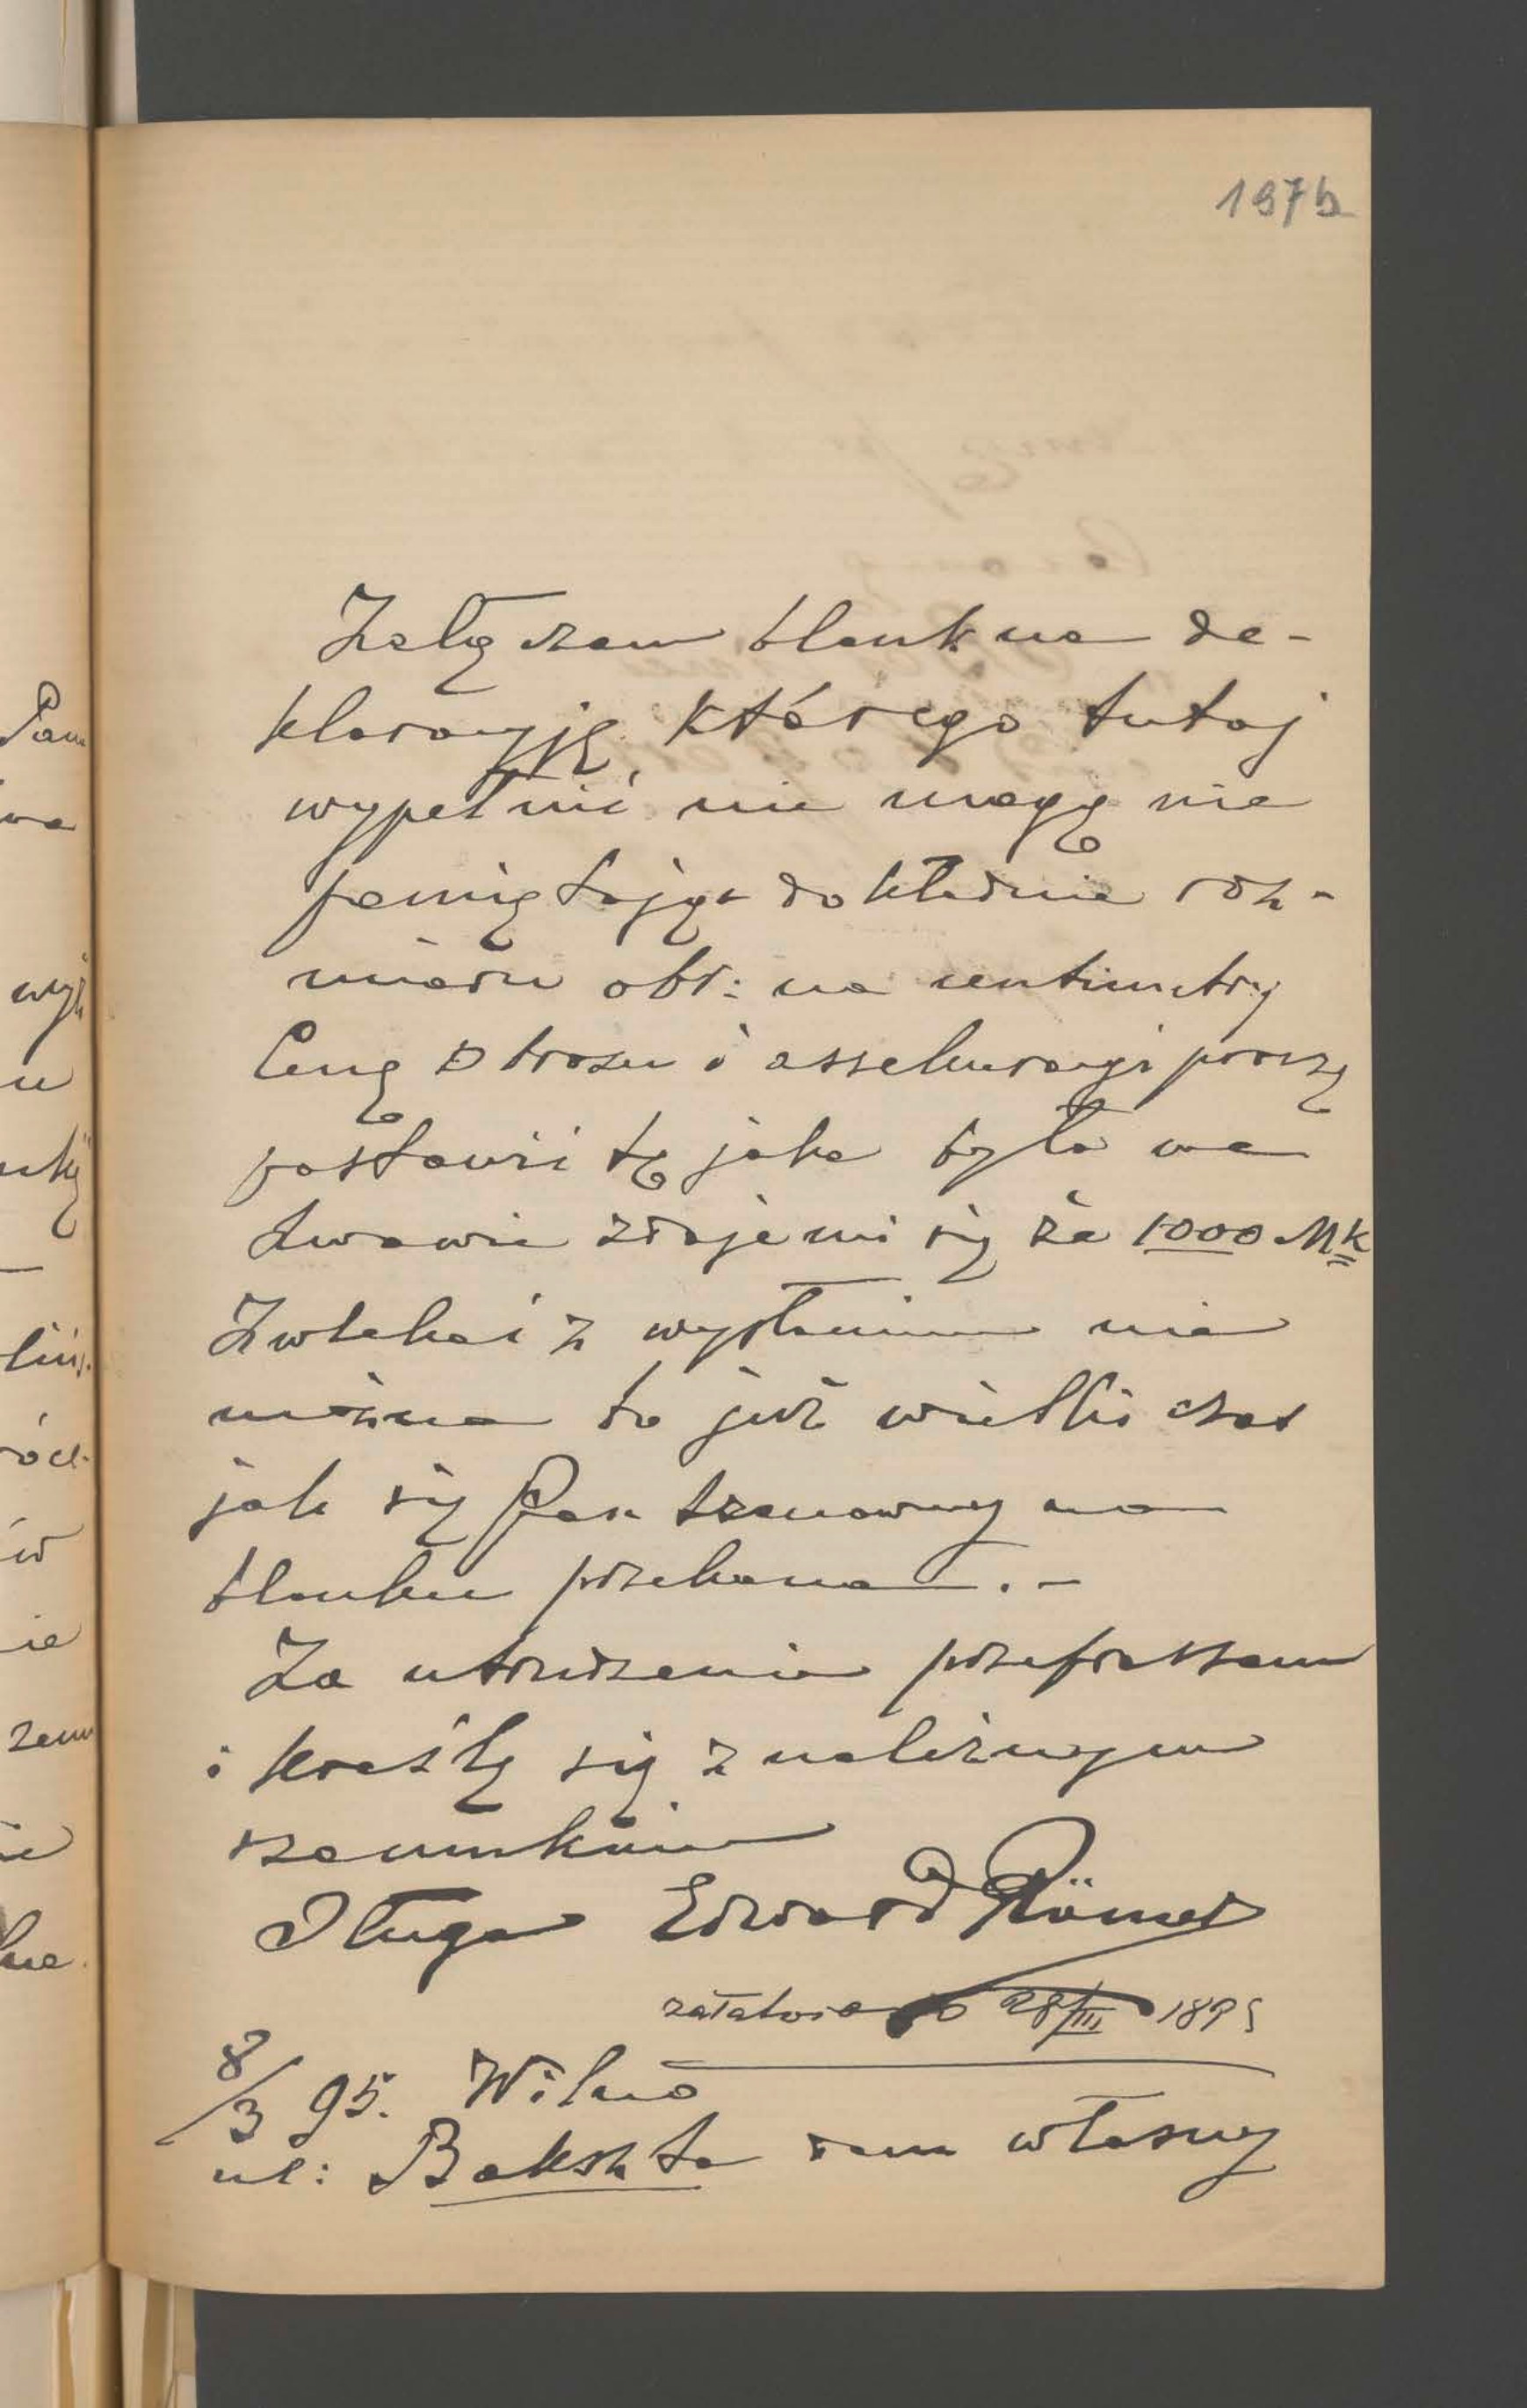 197b
Załączam blank na de-
klaracyję, którego tutaj
wypełnić nie mogę nie
pamiętając dokładnie roz-
miaru obr: na centimetry
Cenę obrazu i assekuracyi proszę
postawić tę jaka była we
Lwowie zdaje mi się że 1000 Mk
Zwlekać z wysłaniem nie
można bo już wielki czas
jak się Pan szanowny na
blanku przekona. -
Za utrudzenie przepraszam
i kreślę się z należnym
szacunkiem
Sługa Edward Römer
załatwiono 28/III 1895
8/3 95. Wilno
ul: Bakszta dom własny
Pan
wa
wyż
u
zem
ie